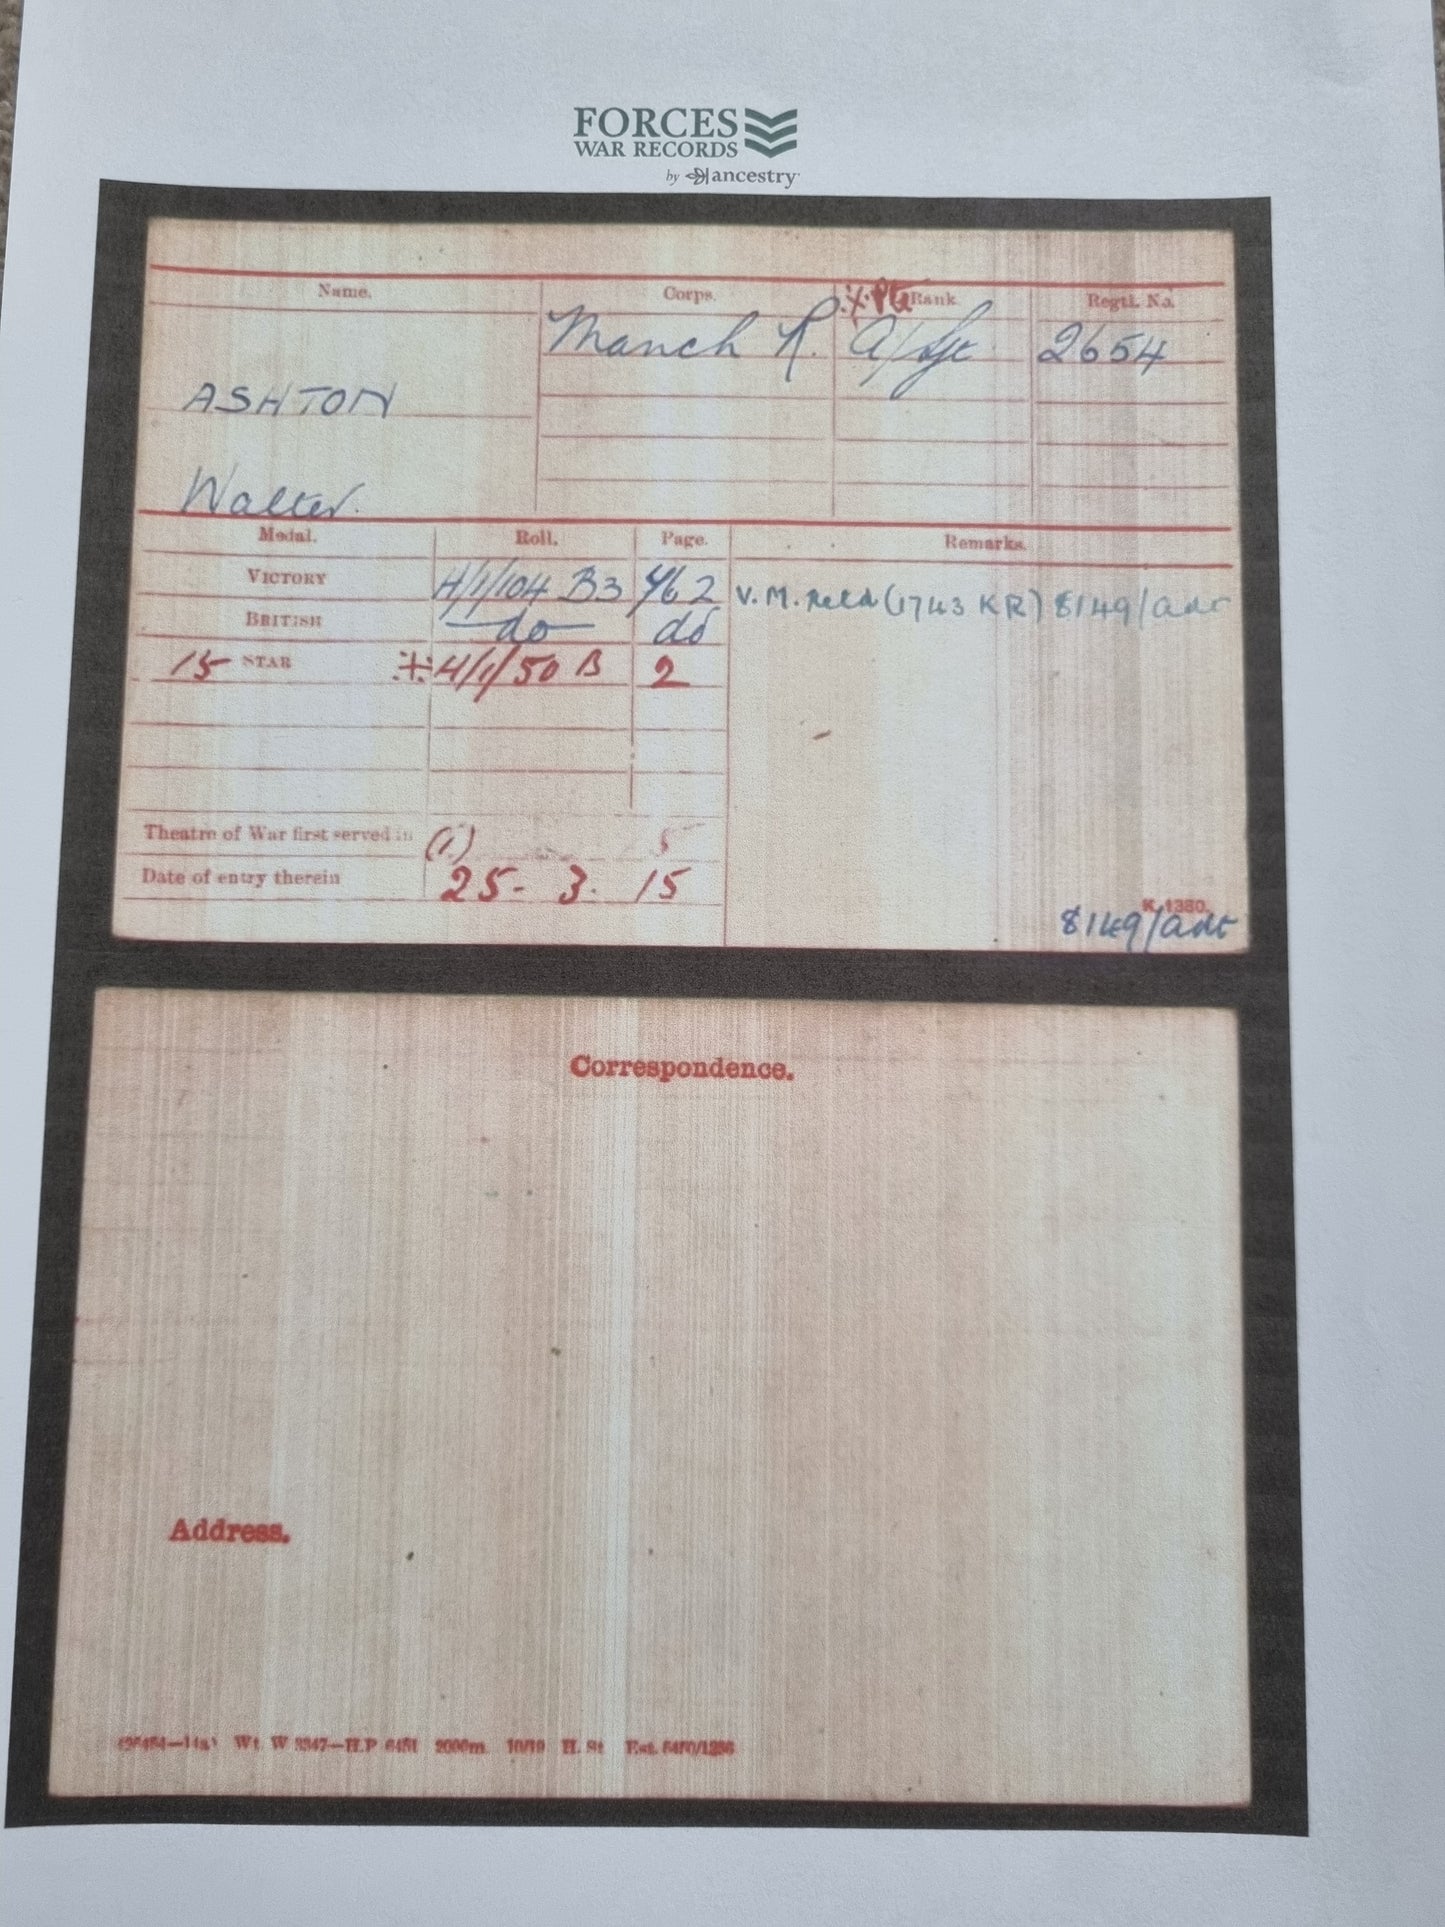 FORCES
WAR RECORDS
by ancestry
Name. Corps. Rank Regtl. No.
Manch R. A/Sjt 2654
ASHTON
Walter.
Medal. Roll. Page. Remarks.
VICTORY H/1/104 B3 462 V.M. Retd (1743 KR) 8149/adt
BRITISH do do
15 STAR H/1/50 B 2
Theatre of War first served in (1.)
Date of entry therein 25- 3. 15
K. 1380.
8149/adt
Correspondence.
Address.
Wt. W 5347—H.P 2000m. 10/19 H. St